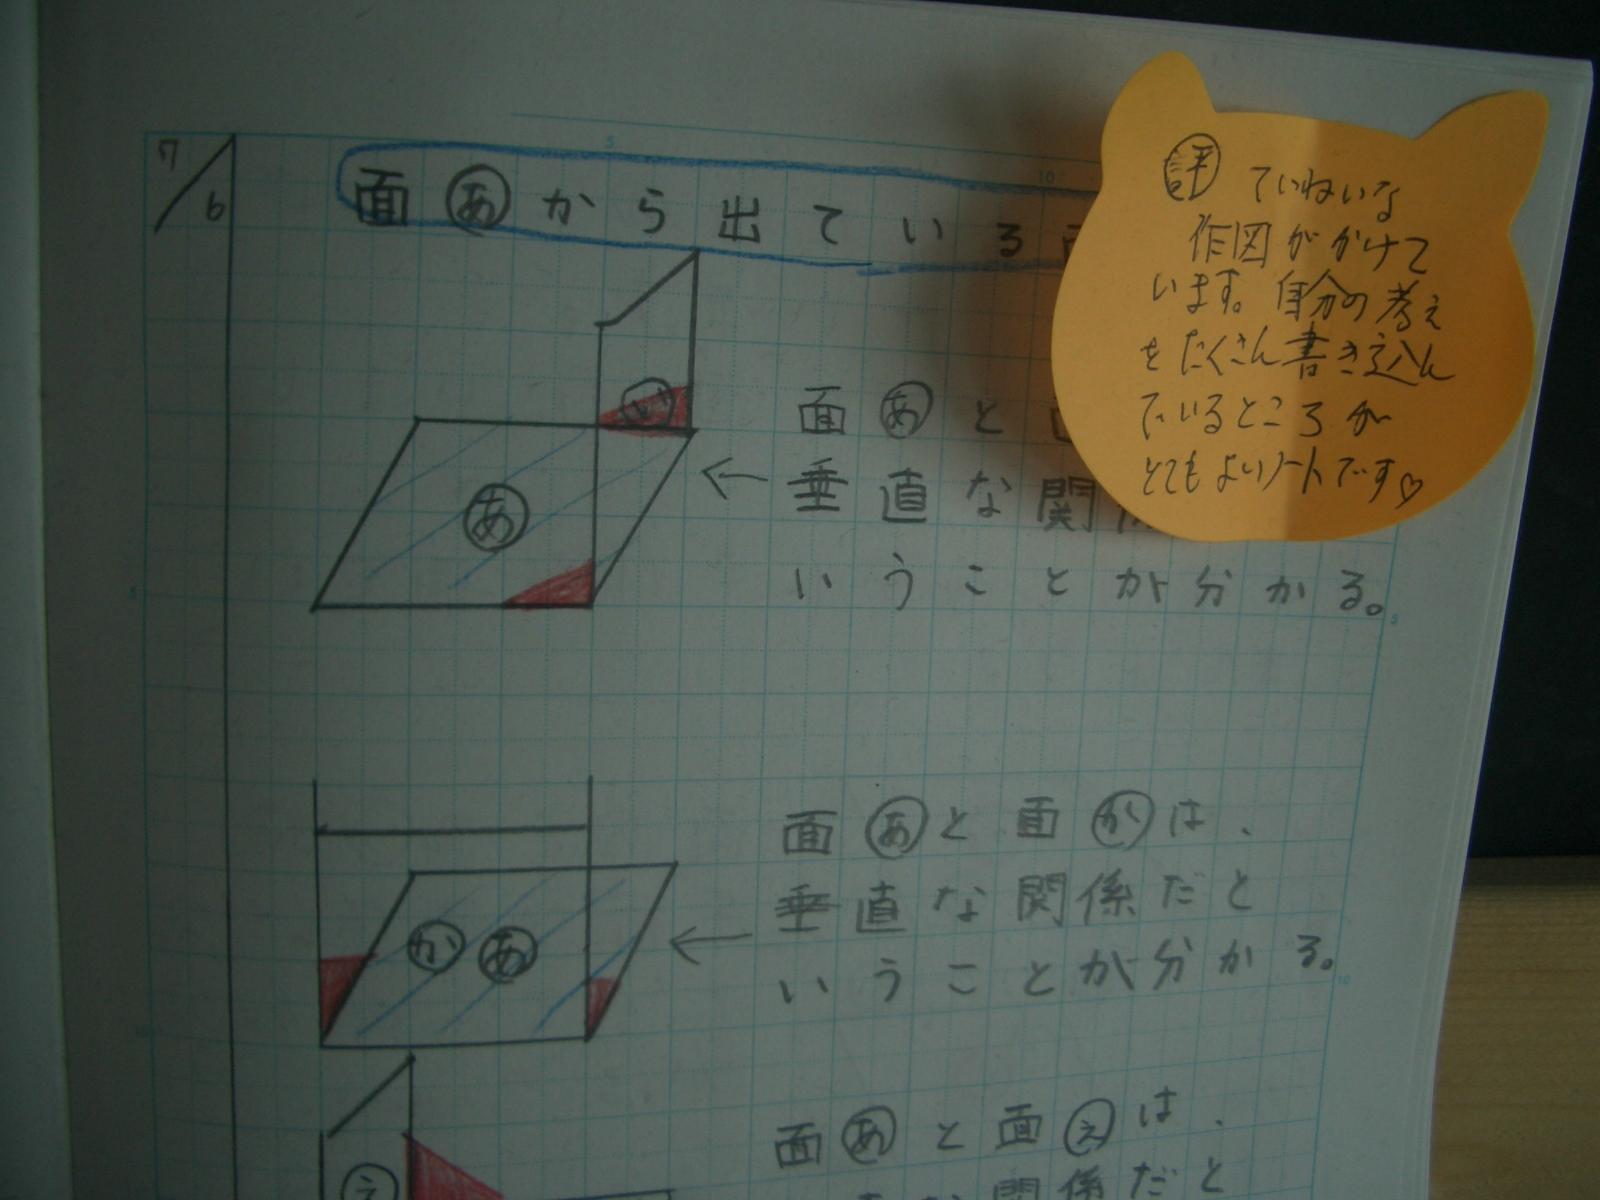 7/6
面あから出ている
評 ていねいな
作図がかけて
います。自分の考え
をたくさん書き込ん
でいるところが
とてもよいノートです♡
い
面あと
垂直な関
いうことが分かる。
あ
面あと面かは、
垂直な関係だと
いうことが分かる。
か あ
面あと面えは、
な関係だと
え
5
10
5
5
10